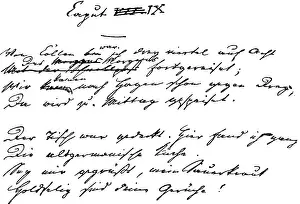 Caput IX
war
Von Cöllen ich drey viertel auf Acht
Des Morgens
fortgereiset;
kamen
Wir nach Hagen schon gegen Drey,
Da wird zu Mittag gespeiset.
Der Tisch war gedeckt. Hier fand ich ganz
Die altgermanische Küche.
Sey mir gegrüßt, mein Sauerkraut
Holdselig sind deine Gerüche!